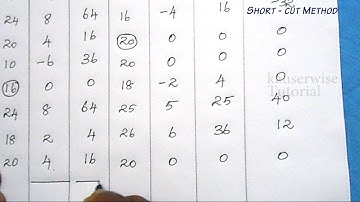 SHORT - CUT METHOD
24 8 64 16 -4 16 -32
20 4 16 20 0 0 0
10 -6 36 20 0 0 0
16 0 0 18 -2 4 0
kauserwise
Tutorial
24 8 64 25 5 25 40
18 2 4 26 6 36 12
20 4 16 20 0 0 0